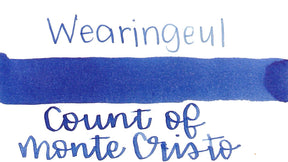 Wearingeul
Count of
Monte Cristo